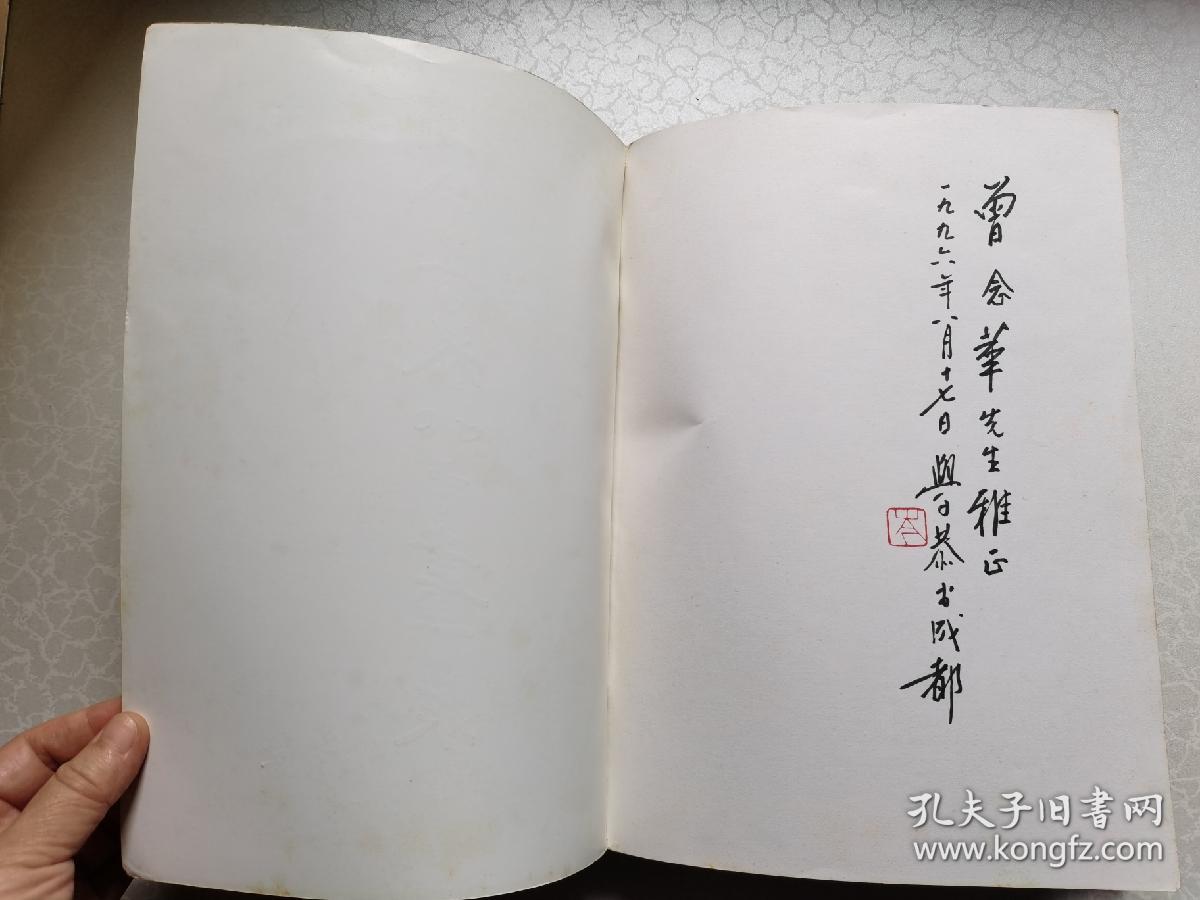 曾念華先生雅正
一九九六年八月十七日 學恭书成都
孔夫子旧书网
www.kongfz.com